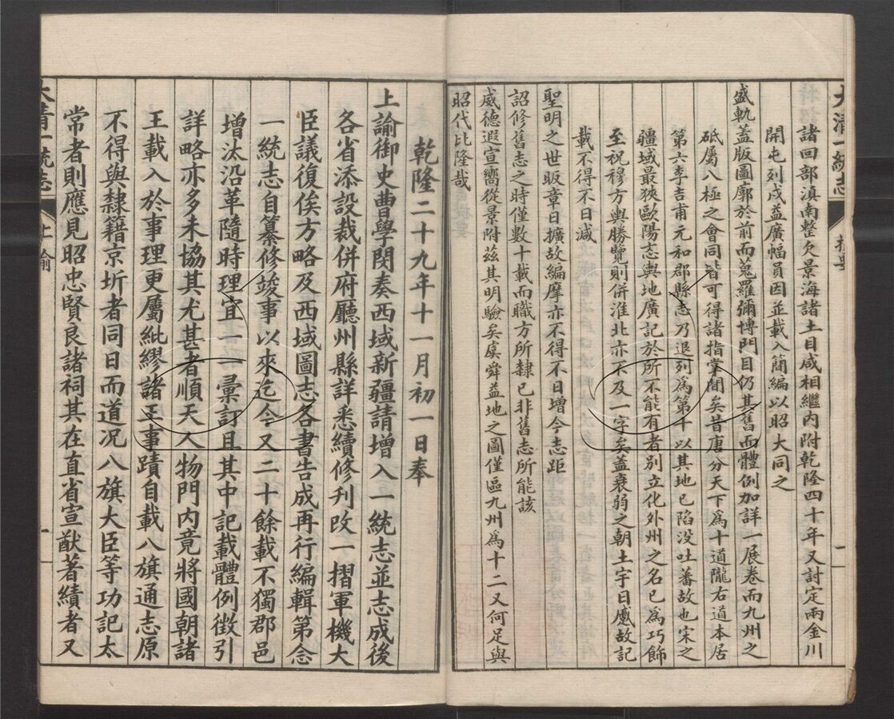 大清一統志
提要
諸回部滇南整欠景海諸土目咸相繼内附乾隆四十年又討定兩金川
開屯列戍益廣幅員因並載入簡編以昭大同之
盛軌蓋版圖廓於前而蒐羅彌博門目仍其舊而體例加詳一展卷而九州之
砥屬八極之會同皆可得諸指掌間矣昔唐分天下為十道隴右道本居
第六李吉甫元和郡縣志乃退列為第十以其地已陷没吐蕃故也宋之
疆域最狹歐陽忞輿地廣記於所不能有者别立化外州之名已為巧飾
至祝穆方輿勝覽則併淮北亦不及一字矣蓋衰弱之朝土宇日蹙故記
載不得不日減
聖明之世版章日擴故編摩亦不得不日增今志距
詔修舊志之時僅數十載而職方所隸已非舊志所能該
威德遐宣嚮從景附兹其明驗矣虞舜益地之圖僅區九州為十二又何足與
昭代比隆哉
乾隆二十九年十一月初一日奉
上諭御史曹學閔奏西域新疆請增入一統志並志成後
各省添設裁併府廳州縣詳悉續修刋改一摺軍機大
臣議復俟方略及西域圖志各書告成再行編輯第念
一統志自纂修竣事以來迄今又二十餘載不獨郡邑
增汰沿革隨時理宜一一彙訂且其中記載體例徵引
詳略亦多未協其尤甚者順天人物門内竟將國朝諸
王載入於事理更屬紕繆諸王事蹟自載八旗通志原
不得與隸籍京圻者同日而道况八旗大臣等功記太
常者則應見昭忠賢良諸祠其在直省宣猷著績者又
大清一統志
上諭
一